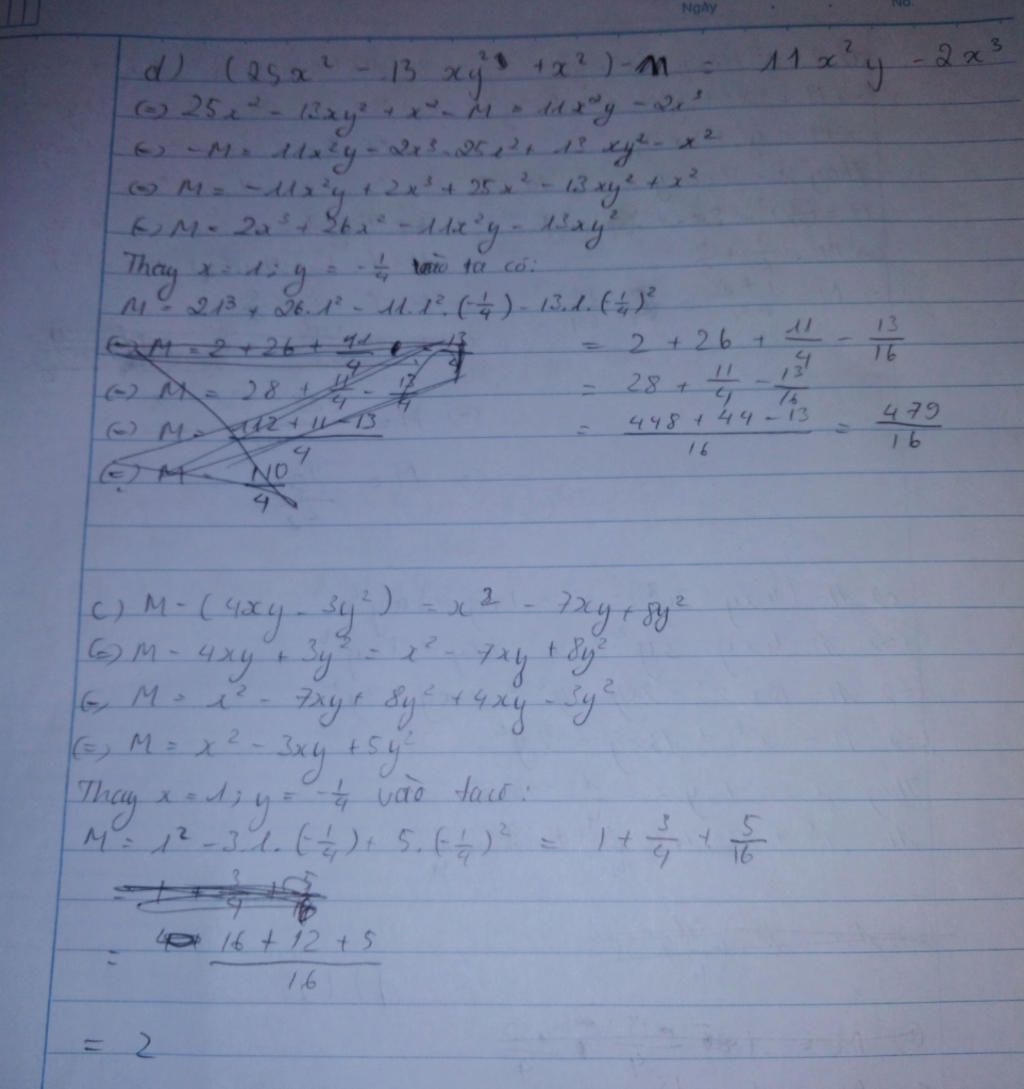 Ngày
No.
d) (25x² - 13 xy² + x²) - M = 11x²y - 2x³
(=) 25x² - 13xy² + x² - M = 11x²y - 2x³
(=) -M = 11x²y - 2x³ - 25x² + 13 xy² - x²
(=) M = -11x²y + 2x³ + 25x² - 13xy² + x²
(=) M = 2x³ + 26x² - 11x²y - 13xy²
Thay x = 1; y = -1/4 vào ta có:
M = 2.1³ + 26.1² - 11.1².(-1/4) - 13.1.(-1/4)²
= 2 + 26 + 11/4 - 13/16
(=) M = 28 + 11/4 - 13/4
= 28 + 11/4 - 13/16
(=) M = (112 + 11 - 13)/4
= (448 + 44 - 13)/16 = 479/16
(=) M = 110/4
c) M - (4xy - 3y²) = x² - 7xy + 8y²
(=) M - 4xy + 3y² = x² - 7xy + 8y²
(=) M = x² - 7xy + 8y² + 4xy - 3y²
(=) M = x² - 3xy + 5y²
Thay x = 1; y = -1/4 vào ta có:
M = 1² - 3.1.(-1/4) + 5.(-1/4)² = 1 + 3/4 + 5/16
= (16 + 12 + 5)/16
= 2